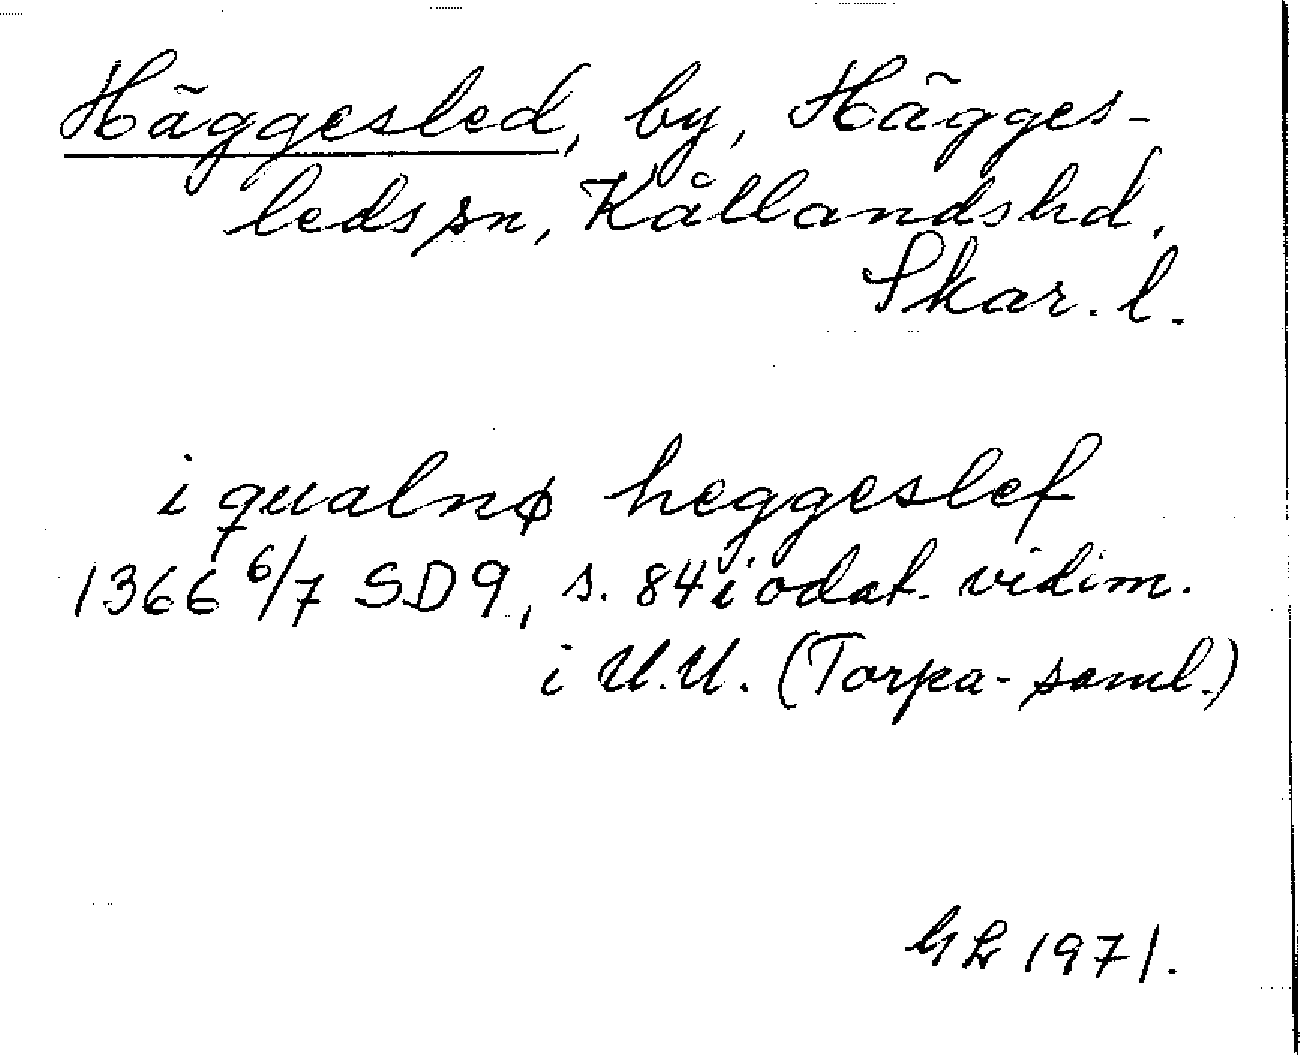 Häggesled, by, Hägges-
leds sn, Kållandshd.
Skar. l.
i qualnø heggeslef
1366 6/7 SD 9, s. 84 i odat. vidim.
i U.U. (Torpa-saml.)
GL 1971.